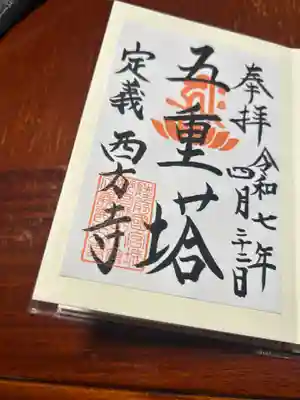 奉拝
令和七年
四月二十二日
五重塔
定義 西方寺